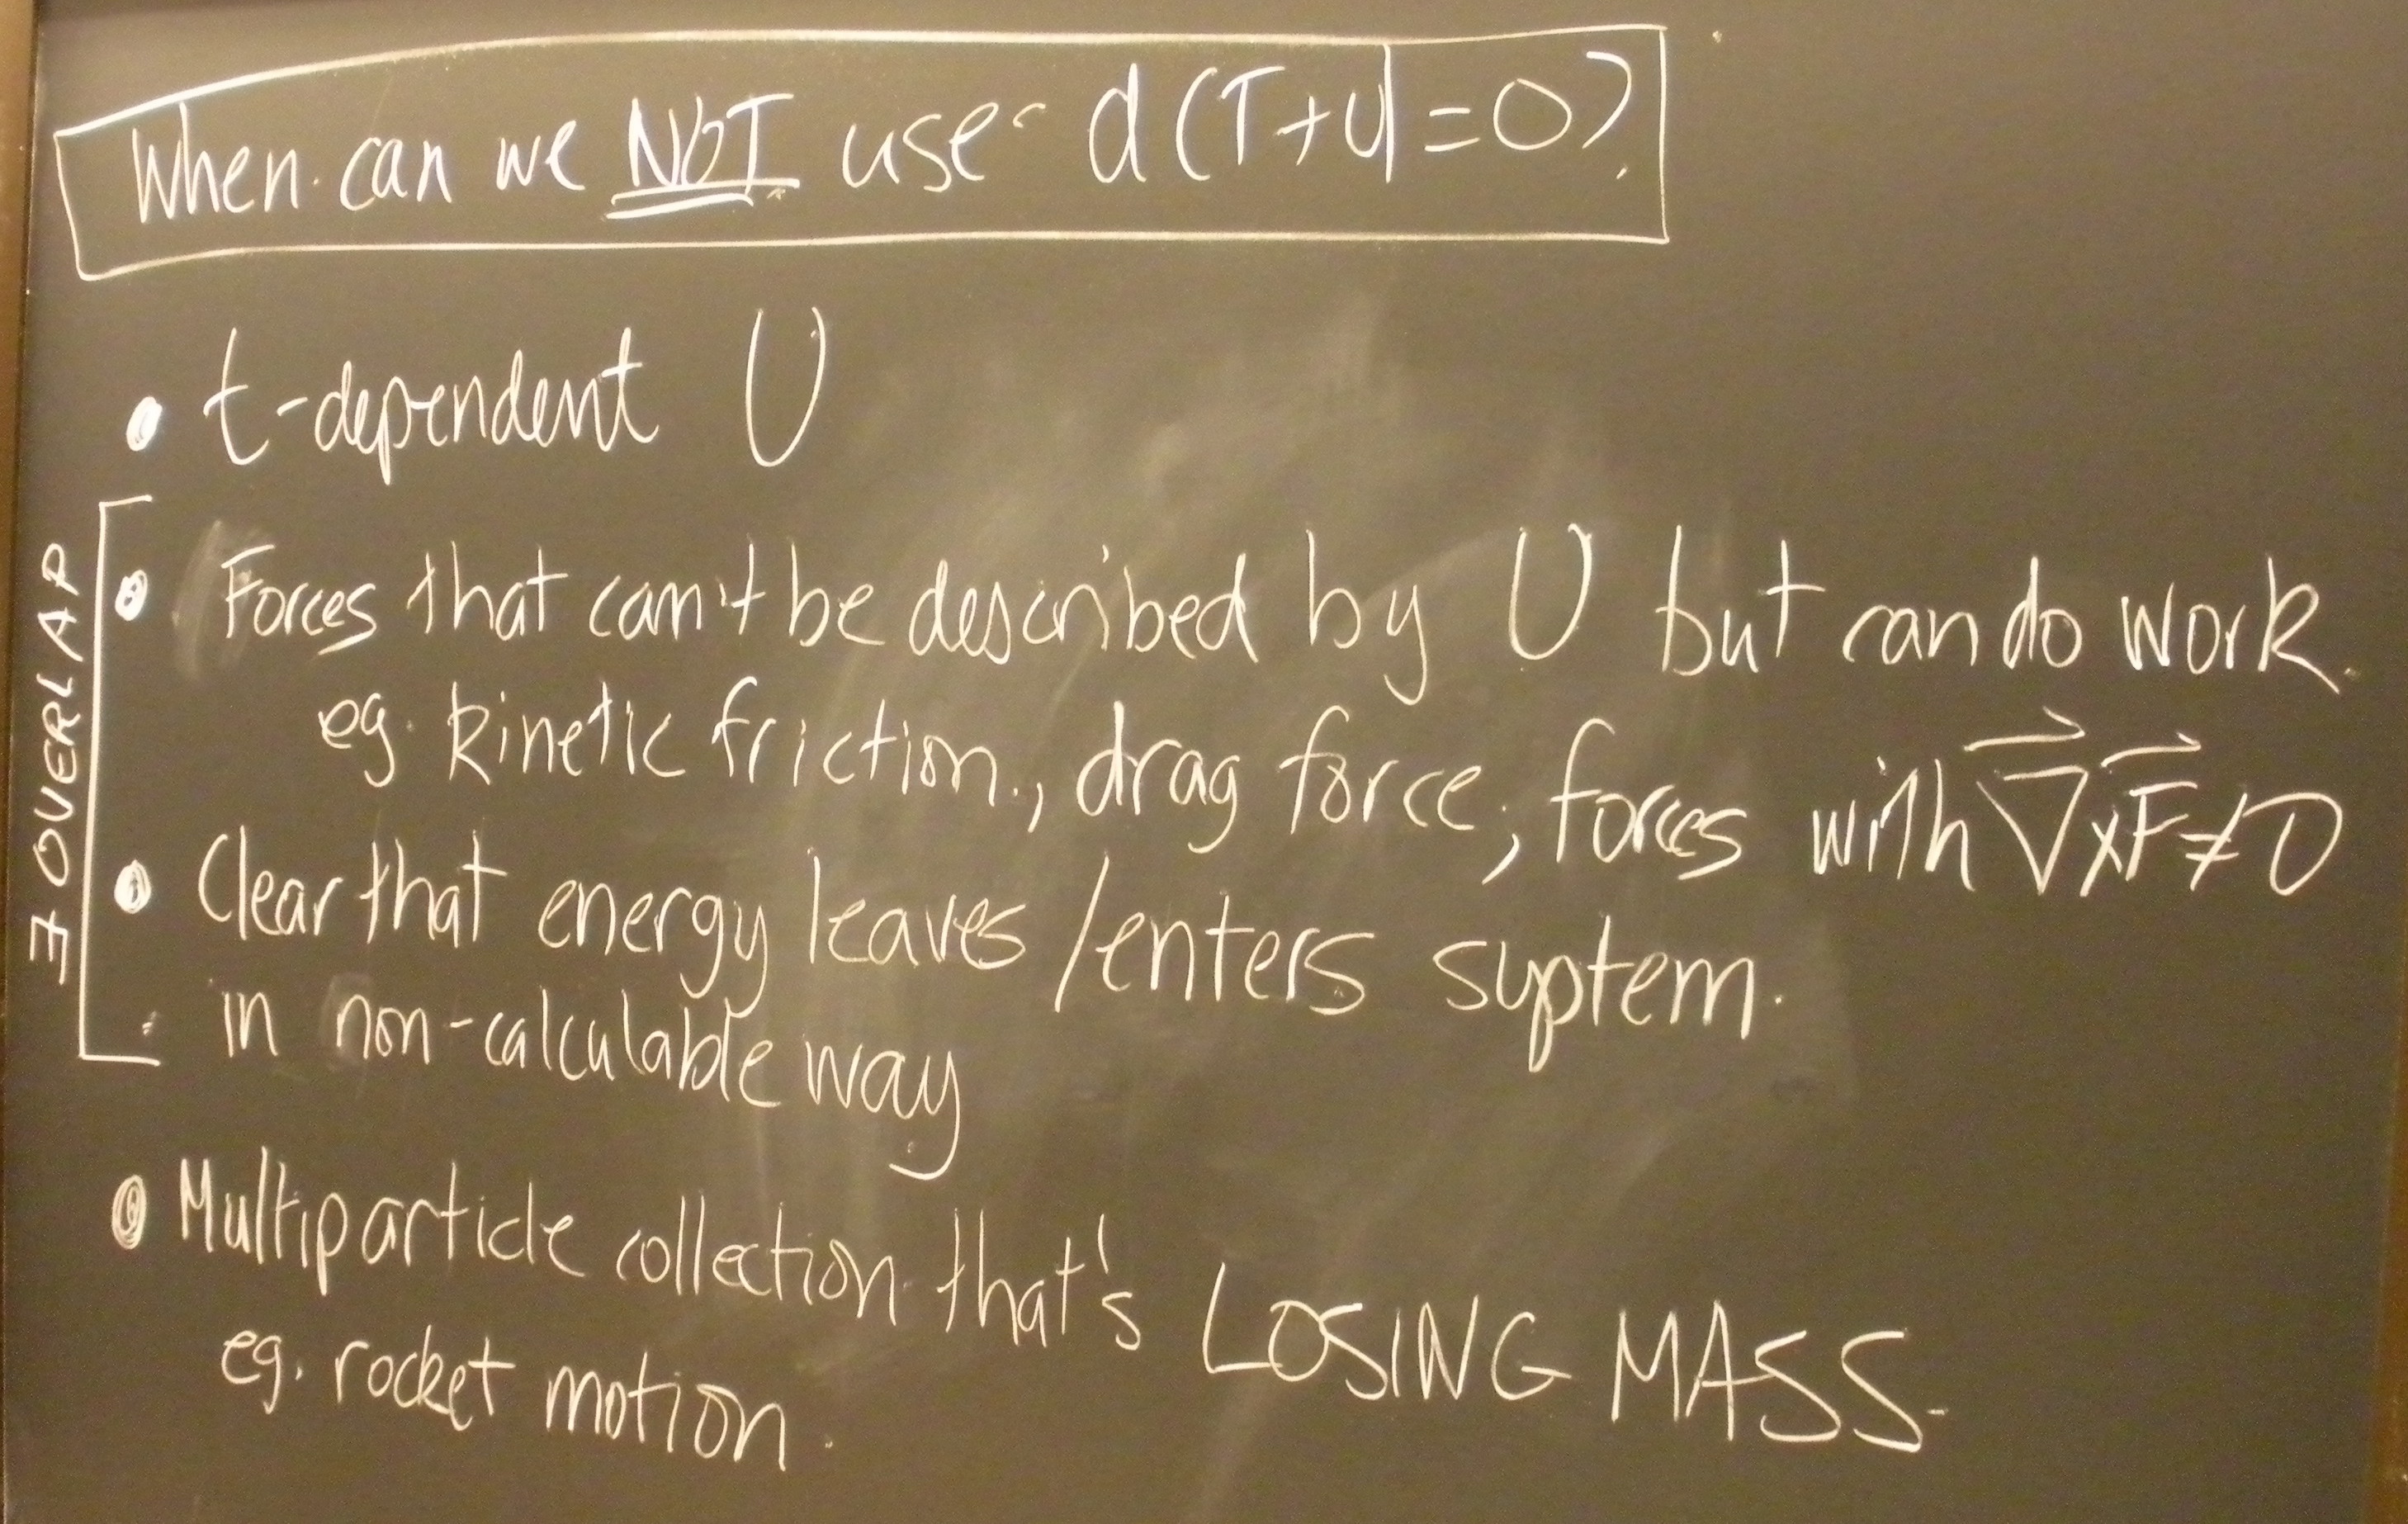 When can we NOT use d(T+U)=0?
• t-dependent U
∃ OVERLAP
• Forces that can't be described by U but can do work.
eg. kinetic friction, drag force, forces with ∇⃗×F⃗≠0
• Clear that energy leaves/enters system.
in non-calculable way
• Multiparticle collection that's LOSING MASS.
eg. rocket motion.